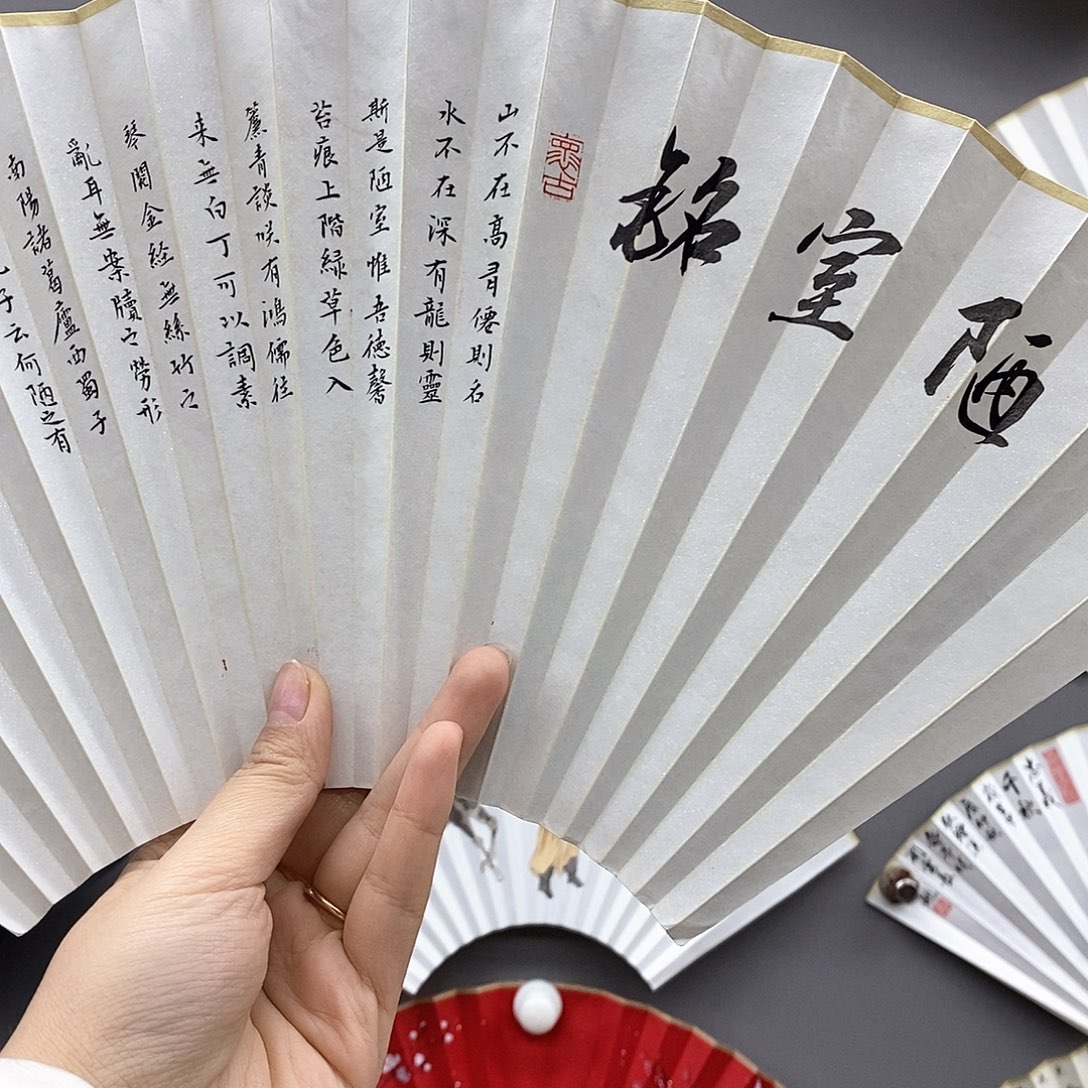 陋室銘
山不在高有僊則名
水不在深有龍則靈
斯是陋室惟吾德馨
苔痕上階緑草色入
簾青談咲有鴻儒往
来無白丁可以調素
琴閲金経無絲竹之
亂耳無案牘之勞形
南陽諸葛廬西蜀子
子云何陋之有
忠義
千秋